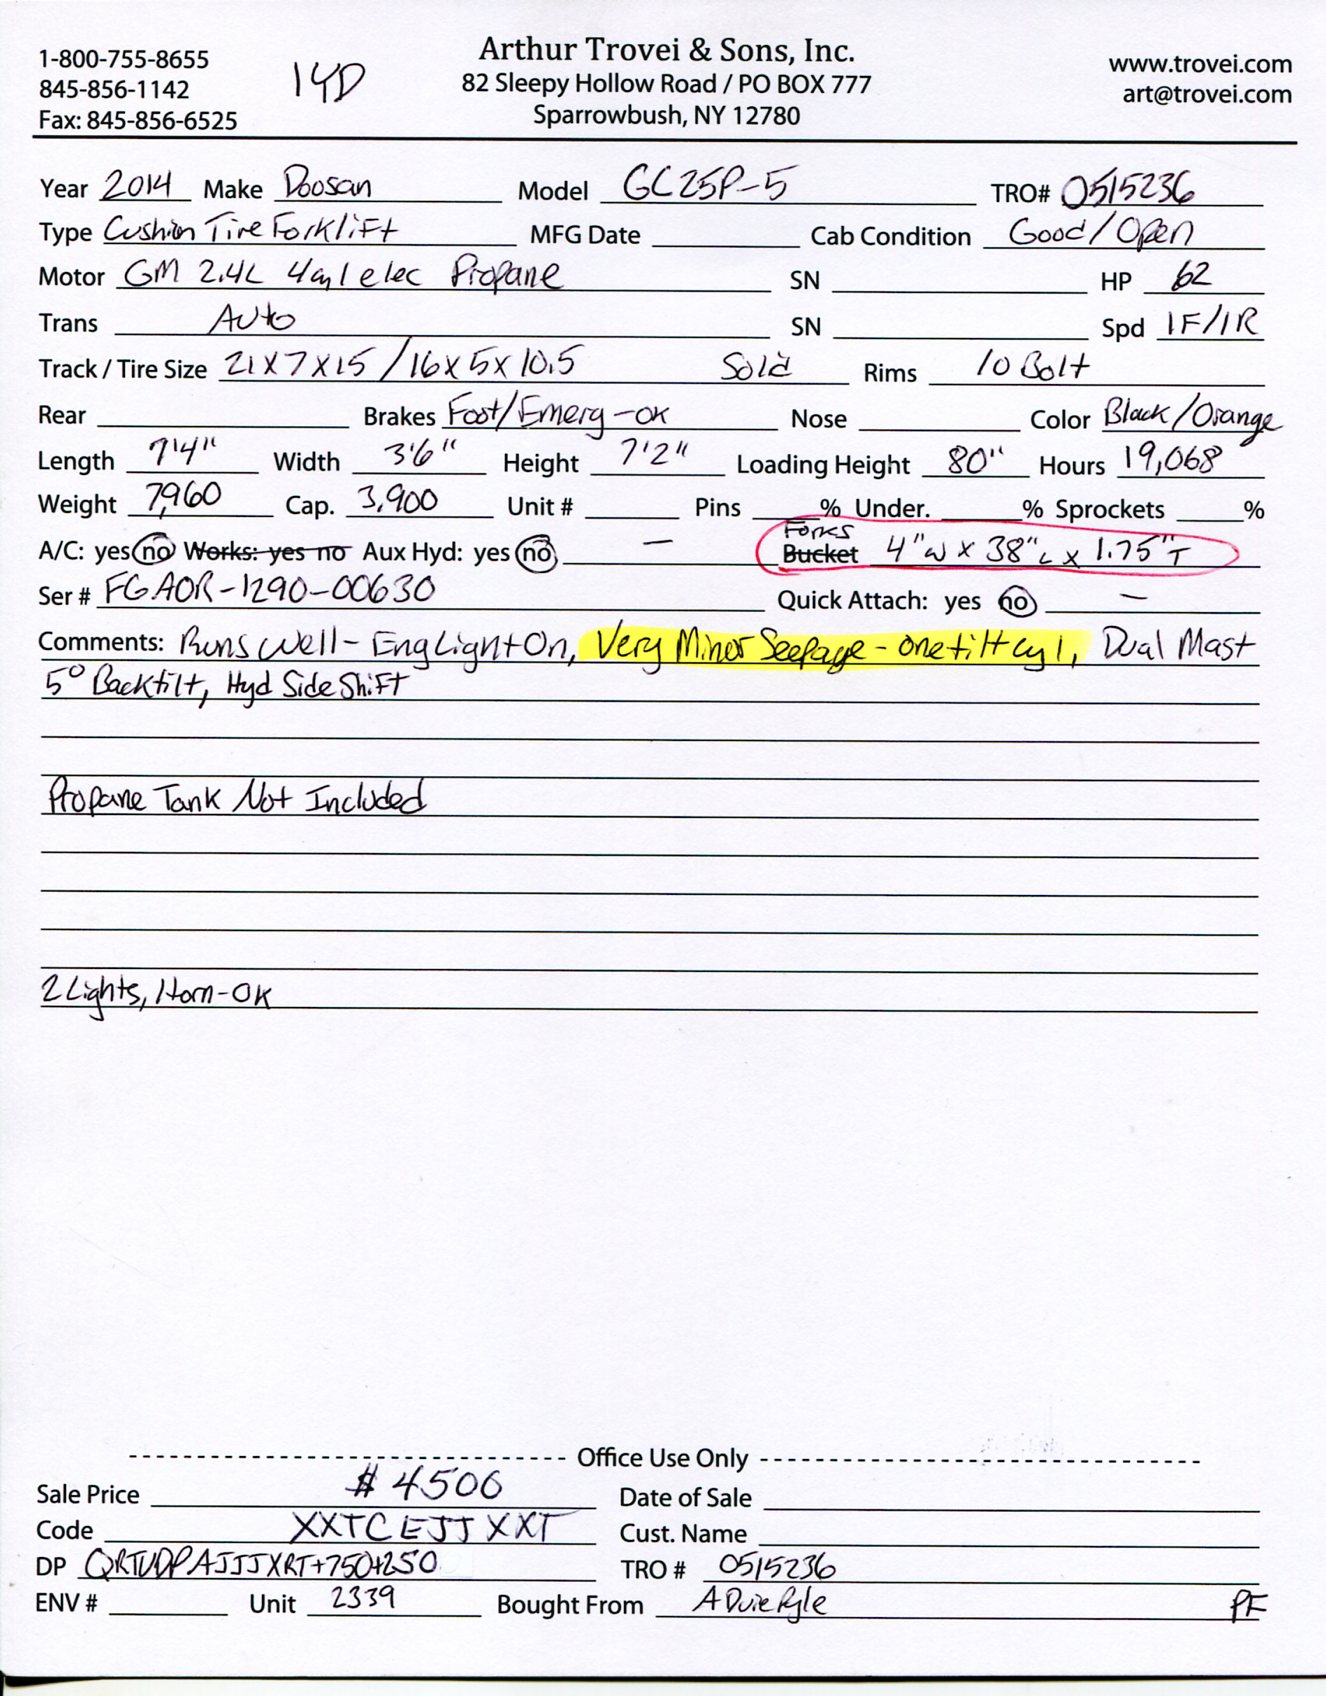 1-800-755-8655
845-856-1142
Fax: 845-856-6525
14D
Arthur Trovei & Sons, Inc.
82 Sleepy Hollow Road / PO BOX 777
Sparrowbush, NY 12780
www.trovei.com
art@trovei.com
Year 2014 Make Doosan Model GC25P-5 TRO# 0515236
Type Cushion Tire Forklift MFG Date Cab Condition Good/Open
Motor GM 2.4L 4cyl elec Propane SN HP 62
Trans Auto SN Spd 1F/1R
Track / Tire Size 21x7x15 /16x5x10.5 Solid Rims 10 Bolt
Rear Brakes Foot/Emerg-ok Nose Color Black/Orange
Length 7'4" Width 3'6" Height 7'2" Loading Height 80" Hours 19,068
Weight 7,960 Cap. 3,900 Unit # Pins % Under. % Sprockets %
A/C: yes no Works: yes no Aux Hyd: yes no — Forks Bucket 4"W x 38"L x 1.75"T
Ser # FGAOR-1290-00630 Quick Attach: yes no —
Comments: Runs Well - Eng Light On, Very Minor Seepage - one tilt cyl, Dual Mast
5° Backtilt, Hyd Side Shift
Propane Tank Not Included
2 Lights, Horn-OK
Office Use Only
Sale Price $4500 Date of Sale
Code XXTCEJJXXT Cust. Name
DP QRTUDPAJJJXRT+750+250 TRO # 0515236
ENV # Unit 2339 Bought From A Duie Pyle PF